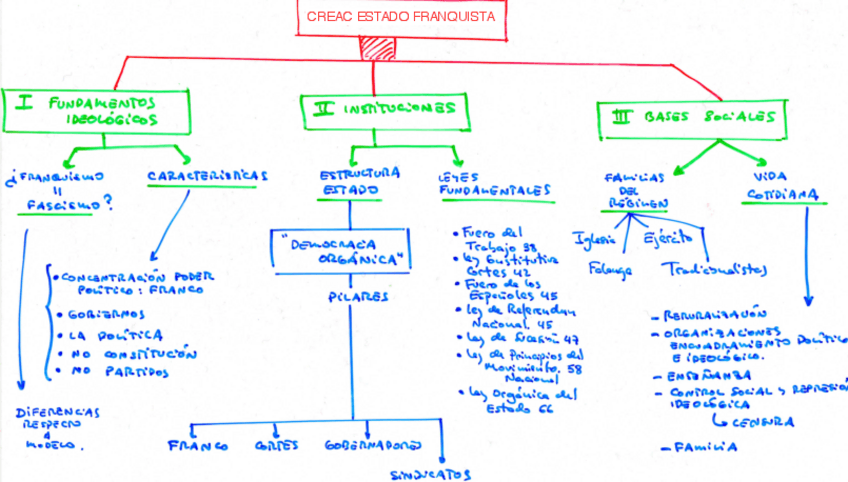 CREAC ESTADO FRANQUISTA
I FUNDAMENTOS
IDEOLÓGICOS
II INSTITUCIONES
III BASES SOCIALES
¿FRANQUISMO
=
FASCISMO?
CARACTERÍSTICAS
ESTRUCTURA
ESTADO
LEYES
FUNDAMENTALES
FAMILIAS
DEL
RÉGIMEN
VIDA
COTIDIANA
• CONCENTRACIÓN PODER
POLÍTICO: FRANCO
• GOBIERNOS
• LA POLÍTICA
• NO CONSTITUCIÓN
• NO PARTIDOS
DIFERENCIAS
RESPECTO
A
MODELO.
"DEMOCRACIA
ORGÁNICA"
PILARES
FRANCO
CORTES
GOBERNADORES
SINDICATOS
• Fuero del
Trabajo 38
• Ley Constitutiva
Cortes 42
• Fuero de los
Españoles 45
• Ley de Referendum
Nacional. 45
• Ley de Sucesión 47
• Ley de Principios del
Movimiento. 58
Nacional
• Ley Orgánica del
Estado 66
Iglesia
Ejército
Falange
Tradicionalistas
- RERURALIZACIÓN
- ORGANIZACIONES
ENCUADRAMIENTO POLÍTICO
E IDEOLÓGICO.
- ENSEÑANZA
- CONTROL SOCIAL Y REPRESIÓN
IDEOLÓGICA
CENSURA
- FAMILIA